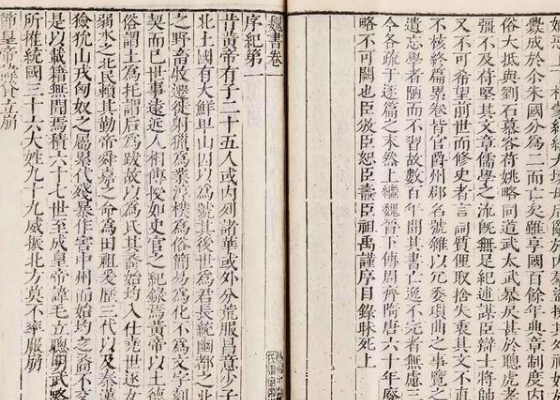 釁成於尒朱國分為二而亡矣雖享國百餘年典章制度內
俗大抵與劉石慕容苻姚略同道武太武暴戾甚於聰虎孝
彊不及苻堅其文章儒學之流旣無足紀述謀臣辯士將帥
又不可希望前世而修史者言詞質俚取捨失衷其文不直
不核終篇累卷皆官爵州郡名號雜以冗委瑣曲之事覽之
遺忘學者陋而不習故數百年間其書亡逸不完者無慮三
今各疏于逐篇之末然上繼魏晉下傳周齊隋唐百六十年廢
略不可闕也臣攽臣恕臣燾臣祖禹謹序目錄昧死上
魏書卷一
序紀第一
昔黃帝有子二十五人或內列諸華或外分荒服昌意少子
北土國有大鮮卑山因以為號其後世為君長統幽都之北
之野畜牧遷徙射獵為業淳樸為俗簡易為化不為文字刻
契而已世事遠近人相傳授如史官之紀錄焉黃帝以土德
俗謂土為托謂后為跋故以為氏其裔始均入仕堯世逐
弱水之北民賴其勤帝舜嘉之命為田祖爰歷三代以及秦漢
獫狁山戎匈奴之屬累代殘暴作害中州而始均之裔不交
是以載籍無聞焉積六十七世至成皇帝諱毛立聰明武略
所推統國三十六大姓九十九威振北方莫不率服崩
節皇帝諱貸立崩